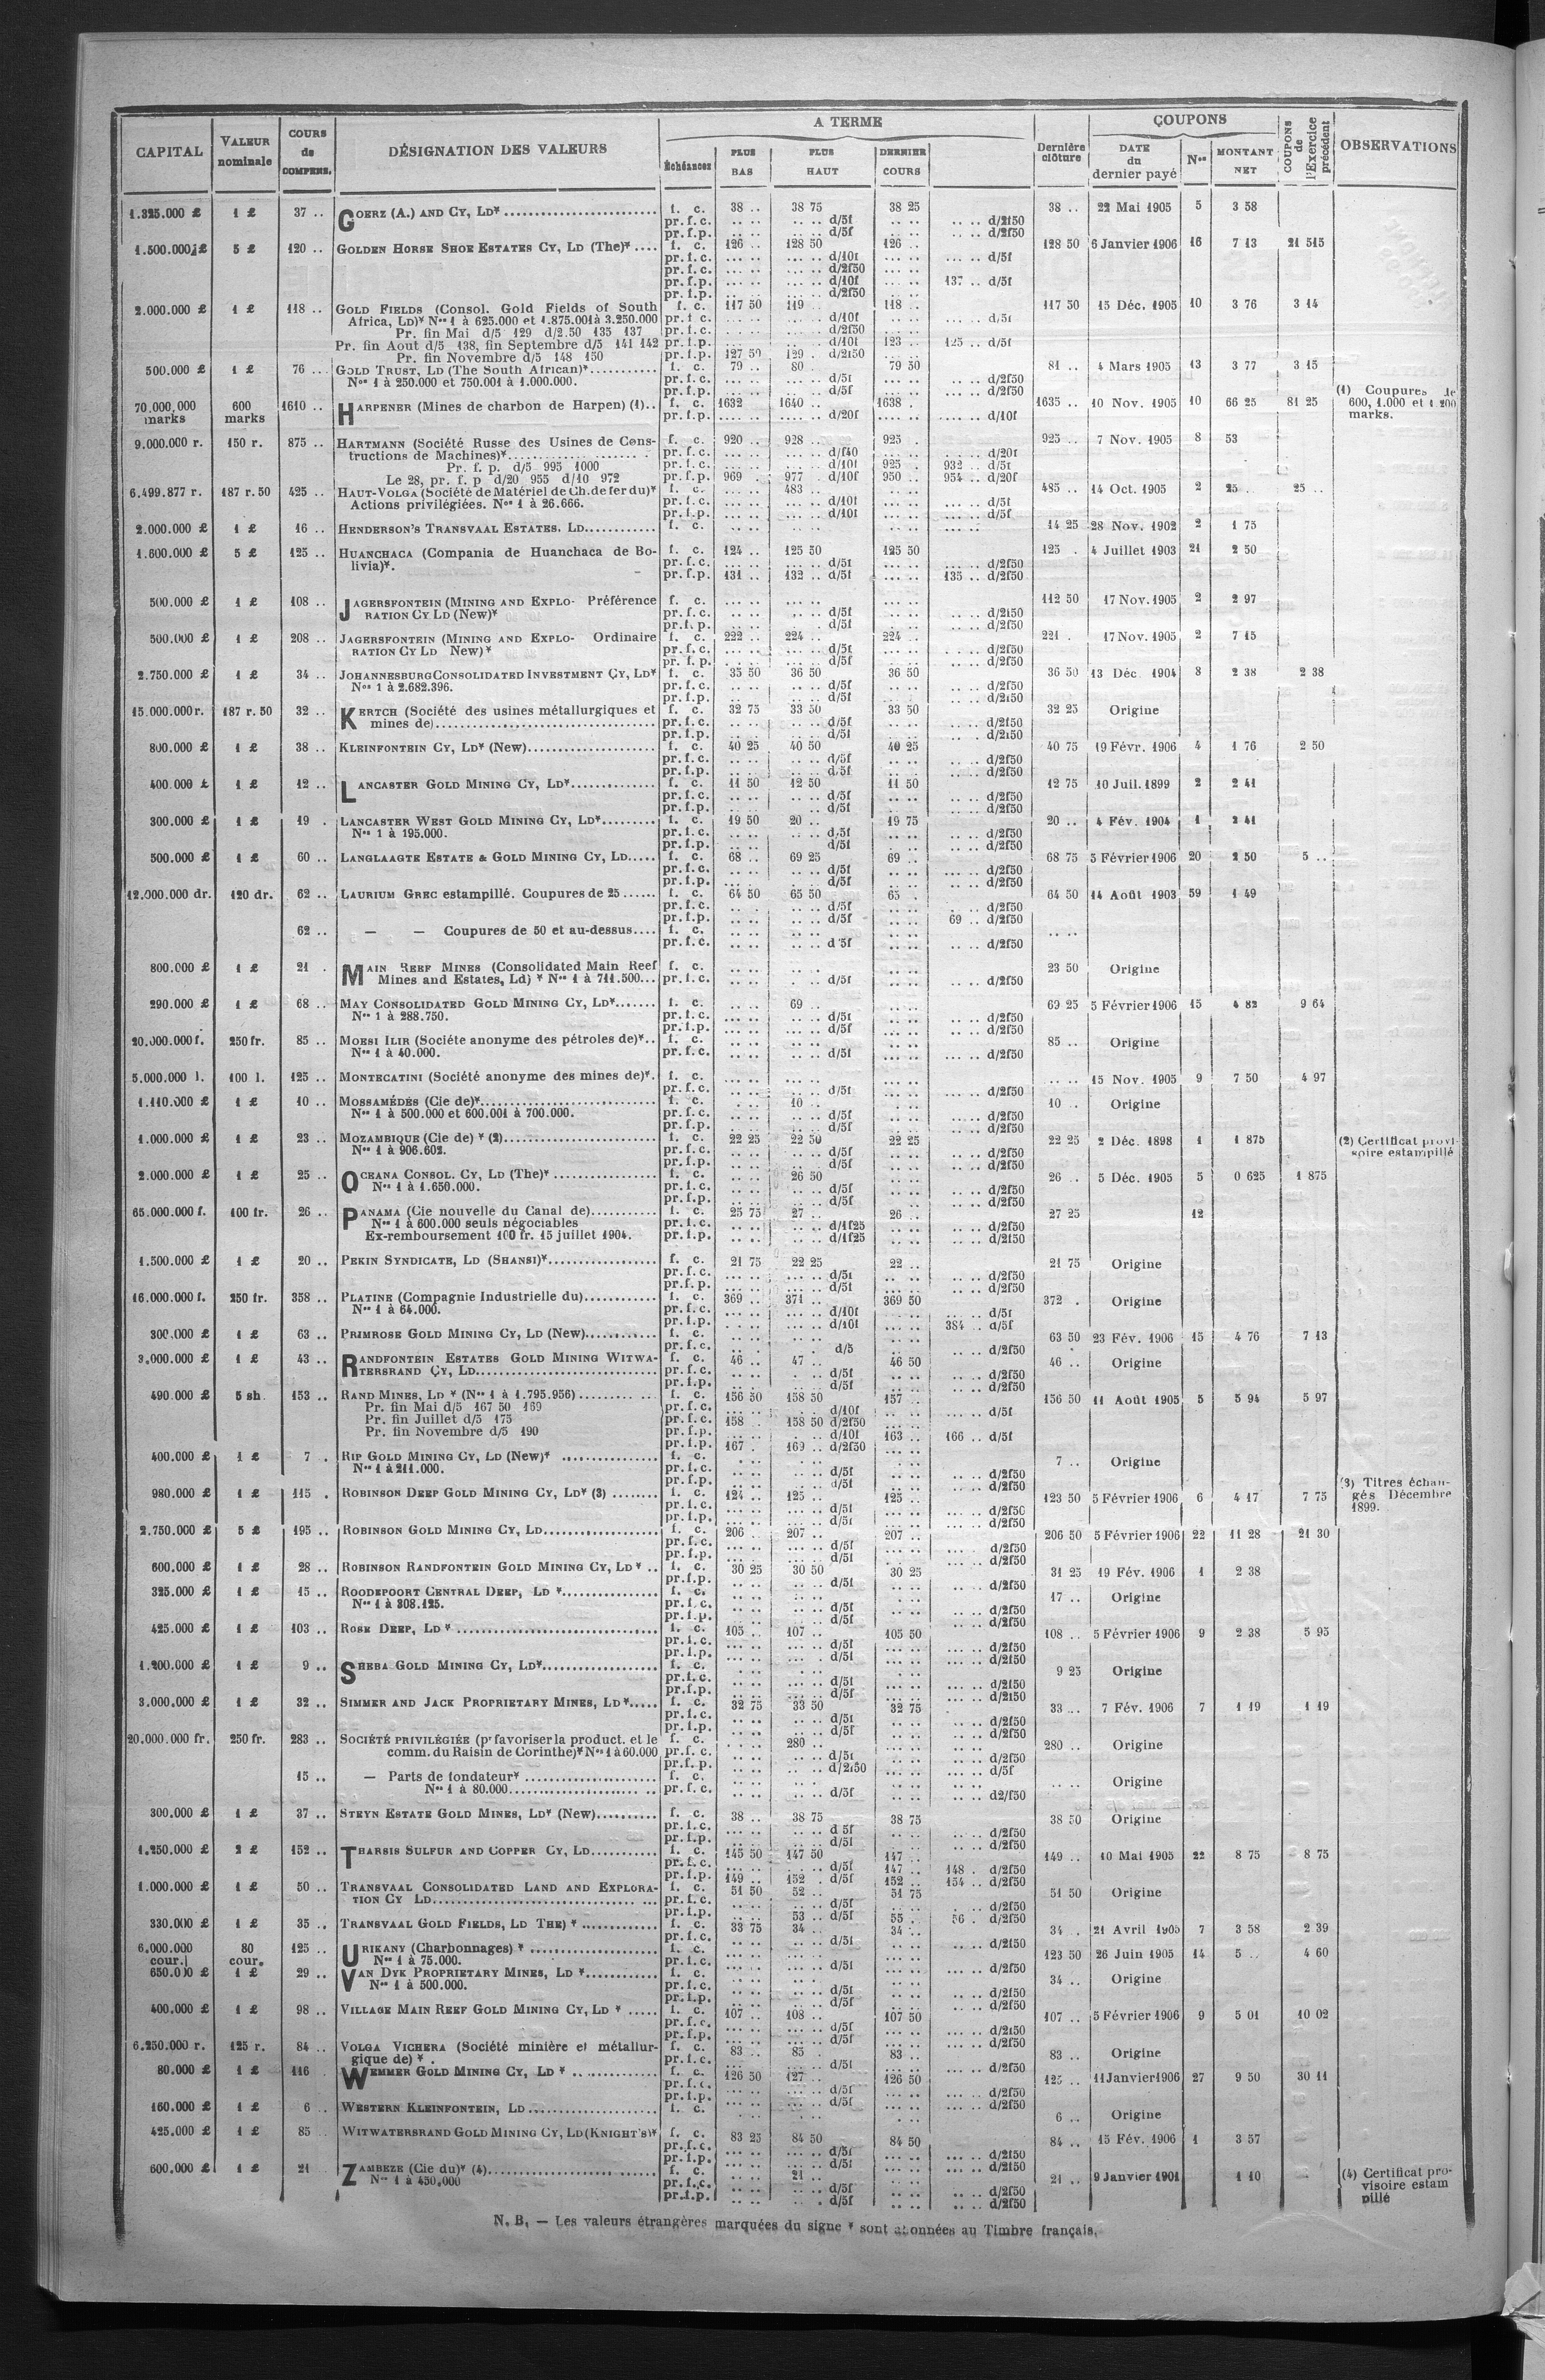 CAPITAL VALEUR nominale COURS de COMPENS. DÉSIGNATION DES VALEURS A TERME Échéances PLUS BAS PLUS HAUT DERNIER COURS Dernière clôture COUPONS DATE du dernier payé Nos MONTANT NET COUPONS de l'Exercice précédent OBSERVATIONS
1.325.000 £ 1 £ 37 .. GOERZ (A.) AND CY, LD* f. c. 38 .. 38 75 38 25 38 .. 22 Mai 1905 5 3 58
pr. f. c. .. .. .. .. d/5f .. .. .. .. d/2f50
pr. f. p. .. .. .. .. d/5f .. .. .. .. d/2f50
1.500.000 £ 5 £ 120 .. GOLDEN HORSE SHOE ESTATES CY, LD (The)* .... f. c. 126 .. 128 50 126 .. 128 50 6 Janvier 1906 16 7 13 21 515
pr. f. c. .... .. .... .. d/10f .... .. .... .. d/5f
pr. f. c. .... .. .... .. d/2f50 .... ..
pr. f. p. .... .. .... .. d/10f .... .. 137 .. d/5f
pr. f. p. .. .. .. .. d/2f50 .. ..
2.000.000 £ 1 £ 118 .. GOLD FIELDS (Consol. Gold Fields of South f. c. 117 50 119 .. 118 .. 117 50 15 Déc. 1905 10 3 76 3 14
Africa, LD)* Nos 1 à 625.000 et 1.875.001 à 3.250.000 pr. f. c. .... .. d/10f .... .. d/5f
Pr. fin Mai d/5 129 d/2.50 135 137 pr. f. c. .... .. d/2f50
Pr. fin Aout d/5 138, fin Septembre d/5 141 142 pr. f. p. .... .. d/10f 123 .. 125 .. d/5f
Pr. fin Novembre d/5 148 150 pr. f. p. 127 50 129 . d/2f50
500.000 £ 1 £ 76 ... GOLD TRUST, LD (The South African)* f. c. 79 .. 80 . 79 50 81 .. 4 Mars 1905 13 3 77 3 15
Nos 1 à 250.000 et 750.001 à 1.000.000. pr. f. c. .... .. d/5f .. .. d/2f50
pr. f. p. .. .. d/5f .. .. d/2f50
70.000.000 marks 600 marks 1610 .. HARPENER (Mines de charbon de Harpen) (1).. f. c. 1632 1640 .. 1638 .. 1635 .. 10 Nov. 1905 10 66 25 81 25 (1) Coupures de 600, 1.000 et 1.200 marks.
pr. f. p. .... .. d/20f .... .. d/10f
9.000.000 r. 150 r. 875 .. HARTMANN (Société Russe des Usines de Cons- f. c. 920 .. 928 .. 925 . 925 .. 7 Nov. 1905 8 53
tructions de Machines)* pr. f. c. .... .. d/f40 .... .. d/20f
Pr. f. p. d/5 995 1000 pr. f. c. .... .. d/10f 925 . 932 .. d/5f
Le 28, pr. f. p d/20 955 d/10 972 pr. f. p. 969 . 977 . d/10f 950 .. 954 .. d/20f
6.499.877 r. 187 r. 50 425 .. HAUT-VOLGA (Société de Matériel de Ch. de fer du)* f. c. .... .. 483 .. .... .. 485 .. 14 Oct. 1905 2 25 .. 25 ..
Actions privilégiées. Nos 1 à 26.666. pr. f. c. .... .. d/10f .... .. d/5f
pr. f. p. .... .. d/10f .... .. d/5f
2.000.000 £ 1 £ 16 .. HENDERSON'S TRANSVAAL ESTATES. LD f. c. .. .. .. .. .. .. 14 25 28 Nov. 1902 2 1 75
1.600.000 £ 5 £ 125 .. HUANCHACA (Compania de Huanchaca de Bo- f. c. 124 .. 125 50 125 50 125 . 4 Juillet 1903 21 2 50
livia)*. pr. f. c. .... .. d/5f .... .. d/2f50
pr. f. p. 131 .. 132 .. d/5f .... .. 135 .. d/2f50
500.000 £ 1 £ 108 .. JAGERSFONTEIN (MINING AND EXPLO- Préférence f. c. .... .. .... .. .... .. 112 50 17 Nov. 1905 2 2 97
RATION CY LD (New)* pr. f. c. .... .. d/5f .... .. d/2f50
pr. f. p. . d/5f .. .. d/2f50
500.000 £ 1 £ 208 .. JAGERSFONTEIN (MINING AND EXPLO- Ordinaire f. c. 222 .. 224 .. 224 .. 221 . 17 Nov. 1905 2 7 15
RATION CY LD New)* pr. f. c. .... .. d/5f .... .. d/2f50
pr. f. p. .. .. d/5f .. .. d/2f50
2.750.000 £ 1 £ 34 .. JOHANNESBURG CONSOLIDATED INVESTMENT CY, LD* f. c. 35 50 36 50 36 50 36 50 13 Déc 1904 8 2 38 2 38
Nos 1 à 2.682.396. pr. f. c. .. .. d/5f .. .. d/2f50
pr. f. p. .. .. d/5f .. .. d/2f50
15.000.000 r. 187 r. 50 32 .. KERTCH (Société des usines métallurgiques et f. c. 32 75 33 50 33 50 32 25 Origine
mines de) pr. f. c. .. .. d/5f .. .. d/2f50
pr. f. p. .. .. d/5f .. .. d/2f50
800.000 £ 1 £ 38 .. KLEINFONTEIN CY, LD* (New) f. c. 40 25 40 50 40 25 40 75 19 Févr. 1906 4 1 76 2 50
pr. f. c. .. .. d/5f .. .. d/2f50
pr. f. p. .. .. d/5f .. .. d/2f50
400.000 £ 1 £ 12 .. LANCASTER GOLD MINING CY, LD* f. c. 11 50 12 50 11 50 12 75 10 Juil. 1899 2 2 41
pr. f. c. .. .. d/5f .. .. d/2f50
pr. f. p. .. .. d/5f .. .. d/2f50
300.000 £ 1 £ 19 . LANCASTER WEST GOLD MINING CY, LD* f. c. 19 50 20 .. 19 75 20 .. 4 Fév. 1904 1 2 41
Nos 1 à 195.000. pr. f. c. .. .. d/5f .. .. d/2f50
pr. f. p. .. .. d/5f .. .. d/2f50
500.000 £ 1 £ 60 .. LANGLAAGTE ESTATE & GOLD MINING CY, LD f. c. 68 .. 69 25 69 .. 68 75 5 Février 1906 20 2 50 5 ..
pr. f. c. .. .. d/5f .. .. d/2f50
pr. f. p. .. .. d/5f .. .. d/2f50
12.000.000 dr. 120 dr. 62 .. LAURIUM GREC estampillé. Coupures de 25 f. c. 64 50 65 50 65 . 64 50 14 Août 1903 59 1 49
pr. f. c. .. .. d/5f .. .. d/2f50
pr. f. p. .. .. d/5f 69 .. d/2f50
62 .. — — Coupures de 50 et au-dessus.... f. c. .. .. .. .. .. .. .. ..
pr. f. c. .. .. d/5f .. .. d/2f50
800.000 £ 1 £ 21 . MAIN REEF MINES (Consolidated Main Reef f. c. .. .. .. .. .. .. 23 50 Origine
Mines and Estates, Ld) * Nos 1 à 711.500... pr. f. c. .. .. d/5f .. .. d/2f50
290.000 £ 1 £ 68 .. MAY CONSOLIDATED GOLD MINING CY, LD* f. c. .. .. 69 .. .. .. 69 25 5 Février 1906 15 4 82 9 64
Nos 1 à 288.750. pr. f. c. .. .. d/5f .. .. d/2f50
pr. f. p. .. .. d/5f .. .. d/2f50
20.000.000 f. 250 fr. 85 .. MOESI ILIR (Sociéte anonyme des pétroles de)*.. f. c. .. .. .. .. .. .. 85 .. Origine
Nos 1 à 40.000. pr. f. c. .. .. d/5f .... .. d/2f50
5.000.000 l. 100 l. 125 .. MONTECATINI (Société anonyme des mines de)*. f. c. .... .. .... .. .... .. .. .. 15 Nov. 1905 9 7 50 4 97
pr. f. c. .. .. d/5f .. .. d/2f50
1.110.000 £ 1 £ 10 .. MOSSAMÉDÈS (Cie de)* f. c. .. .. 10 .. .. .. 10 .. Origine
Nos 1 à 500.000 et 600.001 à 700.000. pr. f. c. .. .. d/5f .. .. d/2f50
pr. f. p. .. .. d/5f .. .. d/2f50
1.000.000 £ 1 £ 23 .. MOZAMBIQUE (Cie de) * (2) f. c. 22 25 22 50 22 25 22 25 2 Déc. 1898 1 1 875 (2) Certificat provi-soire estampillé
Nos 1 à 906.602. pr. f. c. .. .. d/5f .. .. d/2f50
pr. f. p. .. .. d/5f .. .. d/2f50
2.000.000 £ 1 £ 25 .. OCEANA CONSOL. CY, LD (The)* f. c. .. .. 26 50 .. .. 26 .. 5 Déc. 1905 5 0 625 1 875
Nos 1 à 1.650.000. pr. f. c. .. .. d/5f .. .. d/2f50
pr. f. p. .. .. d/5f .. .. d/2f50
65.000.000 f. 100 fr. 26 .. PANAMA (Cie nouvelle du Canal de) f. c. 25 75 27 .. 26 .. 27 25 12
Nos 1 à 600.000 seuls négociables pr. f. c. .. .. d/1f25 .. .. d/2f50
Ex-remboursement 100 fr. 15 juillet 1904. pr. f. p. .. .. d/1f25 .. .. d/2f50
1.500.000 £ 1 £ 20 .. PEKIN SYNDICATE, LD (SHANSI)* f. c. 21 75 22 25 22 .. 21 75 Origine
pr. f. c. .. .. d/5f .. .. d/2f50
pr. f. p. .. .. d/5f .. .. d/2f50
16.000.000 f. 250 fr. 358 .. PLATINE (Compagnie Industrielle du) f. c. 369 .. 371 .. 369 50 372 . Origine
Nos 1 à 64.000. pr. f. c. .. .. d/10f .. .. d/5f
pr. f. p. .. .. d/10f .. .. 384 .. d/5f
300.000 £ 1 £ 63 .. PRIMROSE GOLD MINING CY, LD (New) f. c. .. .. .. .. .. .. 63 50 23 Fév. 1906 15 4 76 7 13
pr. f. c. .. . d/5 .. .. d/2f50
3.000.000 £ 1 £ 43 .. RANDFONTEIN ESTATES GOLD MINING WITWA- f. c. 46 .. 47 .. 46 50 46 .. Origine
TERSRAND CY, LD pr. f. c. .. .. d/5f .. .. d/2f50
pr. f. p. .. .. d/5f .. .. d/2f50
490.000 £ 5 sh. 153 .. RAND MINES, LD * (Nos 1 à 1.795.956) f. c. 156 50 158 50 157 .. 156 50 11 Août 1905 5 5 94 5 97
Pr. fin Mai d/5 167 50 169 pr. f. c. .. .. d/10f .... .. d/5f
Pr. fin Juillet d/5 175 pr. f. c. 158 .. 158 50 d/2f50
Pr. fin Novembre d/5 190 pr. f. p. .. .. d/10f 163 .. 166 .. d/5f
pr. f. p. 167 . 169 .. d/2f50
400.000 £ 1 £ 7 . RIP GOLD MINING CY, LD (New)* f. c. .. .. .. .. .. .. 7 .. Origine
Nos 1 à 211.000. pr. f. c. .. .. d/5f .. .. d/2f50
pr. f. p. .. .. d/5f .. .. d/2f50
980.000 £ 1 £ 115 . ROBINSON DEEP GOLD MINING CY, LD* (3) f. c. 124 .. 125 .. 125 .. 123 50 5 Février 1906 6 4 17 7 75 (3) Titres échan-gés Décembre 1899.
pr. f. c. .. .. d/5f .. .. d/2f50
pr. f. p. .. .. d/5f .. .. d/2f50
2.750.000 £ 5 £ 195 .. ROBINSON GOLD MINING CY, LD f. c. 206 .. 207 .. 207 .. 206 50 5 Février 1906 22 11 28 21 30
pr. f. c. .. .. d/5f .. .. d/2f50
pr. f. p. .. .. d/5f .. .. d/2f50
600.000 £ 1 £ 28 .. ROBINSON RANDFONTEIN GOLD MINING CY, LD * .. f. c. 30 25 30 50 30 25 31 25 19 Fév. 1906 1 2 38
pr. f. p. .. .. d/5f .. .. d/2f50
325.000 £ 1 £ 15 .. ROODEPOORT CENTRAL DEEP, LD * f. c. .. .. .. .. .. .. 17 .. Origine
Nos 1 à 308.125. pr. f. c. .. .. d/5f .. .. d/2f50
pr. f. p. .. .. d/5f .. .. d/2f50
425.000 £ 1 £ 103 .. ROSE DEEP, LD * f. c. 105 .. 107 .. 105 50 108 .. 5 Février 1906 9 2 38 5 95
pr. f. c. .. .. d/5f .. .. d/2f50
pr. f. p. .. .. d/5f .. .. d/2f50
1.200.000 £ 1 £ 9 .. SHEBA GOLD MINING CY, LD* f. c. .. .. .. .. .. .. 9 25 Origine
pr. f. c. .. .. d/5f .. .. d/2f50
pr. f. p. .. .. d/5f .. .. d/2f50
3.000.000 £ 1 £ 32 .. SIMMER AND JACK PROPRIETARY MINES, LD* f. c. 32 75 33 50 32 75 33 .. 7 Fév. 1906 7 1 19 1 19
pr. f. c. .. .. d/5f .. .. d/2f50
pr. f. p. .. .. d/5f .. .. d/2f50
20.000.000 fr. 250 fr. 283 .. SOCIÉTÉ PRIVILÉGIÉE (pr favoriser la product. et le f. c. .. .. 280 .. .. .. 280 .. Origine
comm. du Raisin de Corinthe)* Nos 1 à 60.000 pr. f. c. .. .. d/5f .. .. d/2f50
pr. f. p. .. .. d/2f50 .. .. d/5f
15 .. — Parts de fondateur* f. c. .. .. .. .. .. .. .. .. Origine
Nos 1 à 80.000 pr. f. c. .. .. d/5f .. .. d2/f50
300.000 £ 1 £ 37 .. STEYN ESTATE GOLD MINES, LD* (New) f. c. 38 .. 38 75 38 75 38 50 Origine
pr. f. c. .. .. d 5f .. .. d/2f50
pr. f. p. .. .. d/5f .. .. d/2f50
1.250.000 £ 2 £ 152 .. THARSIS SULFUR AND COPPER CY, LD f. c. 145 50 147 50 147 .. 149 .. 10 Mai 1905 22 8 75 8 75
pr. f. c. .. .. d/5f 147 .. 148 . d/2f50
pr. f. p. 149 .. 152 . d/5f 152 .. 154 .. d/2f50
1.000.000 £ 1 £ 50 .. TRANSVAAL CONSOLIDATED LAND AND EXPLORA- f. c. 51 50 52 .. 51 75 51 50 Origine
TION CY LD pr. f. c. .. .. d/5f .. .. d/2f50
pr. f. p. .. .. 53 .. d/5f 55 . 56 . d/2f50
330.000 £ 1 £ 35 .. TRANSVAAL GOLD FIELDS, LD THE) * f. c. 33 75 34 .. 34 .. 34 .. 21 Avril 1905 7 3 58 2 39
pr. f. c. .. .. d/5f .. .. d/2f50
6.000.000 cour. 80 cour. 125 .. URIKANY (Charbonnages) * f. c. .. .. .. .. .. .. 123 50 26 Juin 1905 14 5 .. 4 60
Nos 1 à 75.000. pr. f. c. .. .. d/5f .. .. d/2f50
650.000 £ 1 £ 29 .. VAN DYK PROPRIETARY MINES, LD * f. c. .. .. .. .. .. .. 34 .. Origine
Nos 1 à 500.000. pr. f. c. .. .. d/5f .. .. d/2f50
pr. f. p. .. .. d/5f .. .. d/2f50
400.000 £ 1 £ 98 .. VILLAGE MAIN REEF GOLD MINING CY, LD * f. c. 107 .. 108 .. 107 50 107 .. 5 Février 1906 9 5 01 10 02
pr. f. c. .. .. d/5f .. .. d/2f50
pr. f. p. .. .. d/5f .. .. d/2f50
6.250.000 r. 125 r. 84 .. VOLGA VICHERA (Société minière et métallur- f. c. 83 .. 85 . 83 .. 83 .. Origine
gique de) * . pr. f. c. .. .. d/5f .. .. d/2f50
80.000 £ 1 £ 116 WEMMER GOLD MINING CY, LD * f. c. 126 50 127 .. 126 50 125 .. 11 Janvier 1906 27 9 50 30 11
pr. f. c. .. .. d/5f .. .. d/2f50
pr. f. p. .. .. d/5f .. .. d/2f50
160.000 £ 1 £ 6 .. WESTERN KLEINFONTEIN, LD f. c. .. .. .. .. .. .. 6 .. Origine
425.000 £ 1 £ 85 .. WITWATERSRAND GOLD MINING CY, LD (KNIGHT'S)* f. c. 83 25 84 50 84 50 84 .. 15 Fév. 1906 1 3 57
pr. f. c. .. .. d/5f .. .. d/2f50
pr. f. p. .. .. d/5f .. .. d/2f50
600.000 £ 1 £ 21 ZAMBEZE (Cie du)* (4) f. c. .. .. 21 .. .. .. 21 .. 9 Janvier 1901 1 10 (4) Certificat pro-visoire estam pillé
Nos 1 à 450.000 pr. f. c. .. .. d/5f .. .. d/2f50
pr. f. p. .. .. d/5f .. .. d/2f50
N. B. — Les valeurs étrangères marquées du signe * sont abonnées au Timbre français.